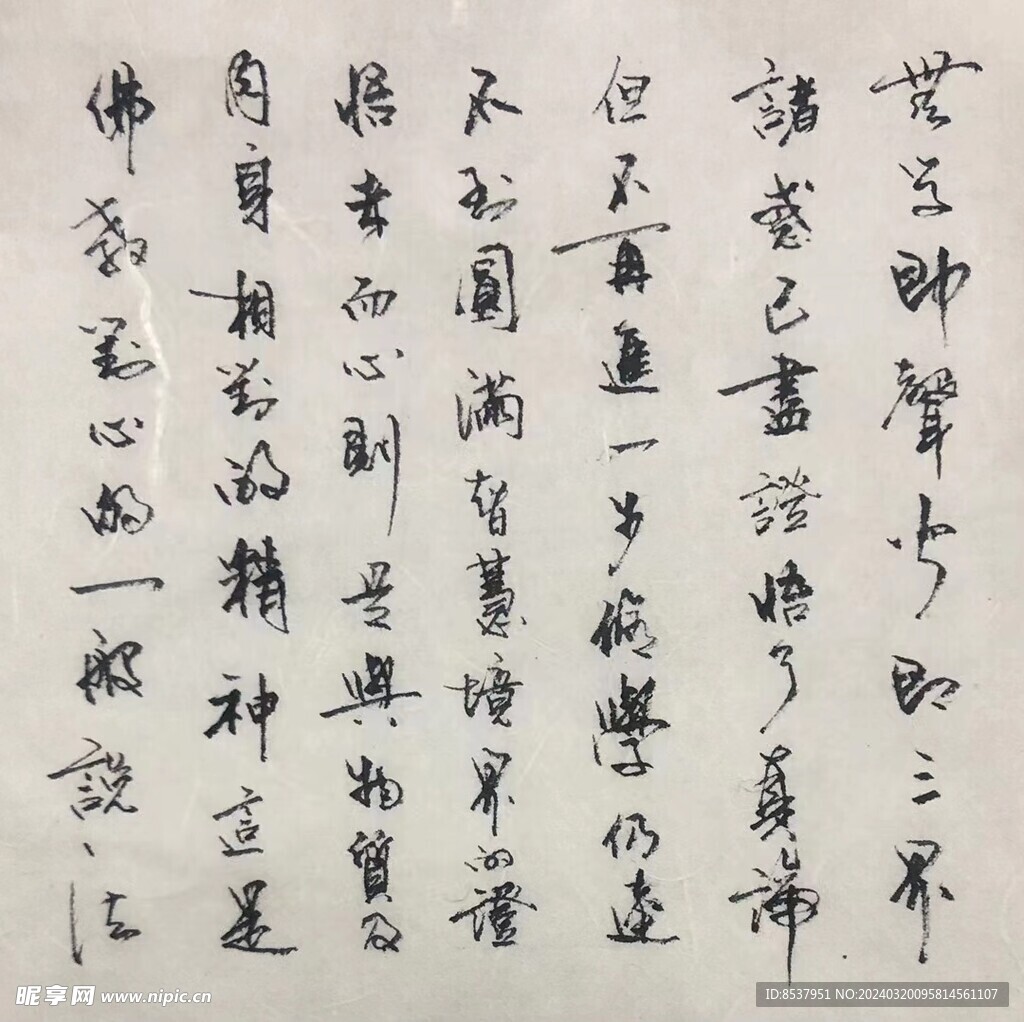 無学即聲聞即三界
諸惑已盡證悟了真諦
但不再進一步修學仍達
不到圓滿智慧境界的證
悟者而心則是與物質及
肉身相對的精神這是
佛教對心的一般說、法
昵享网 www.nipic.cn
ID:8537951 NO:20240320095814561107